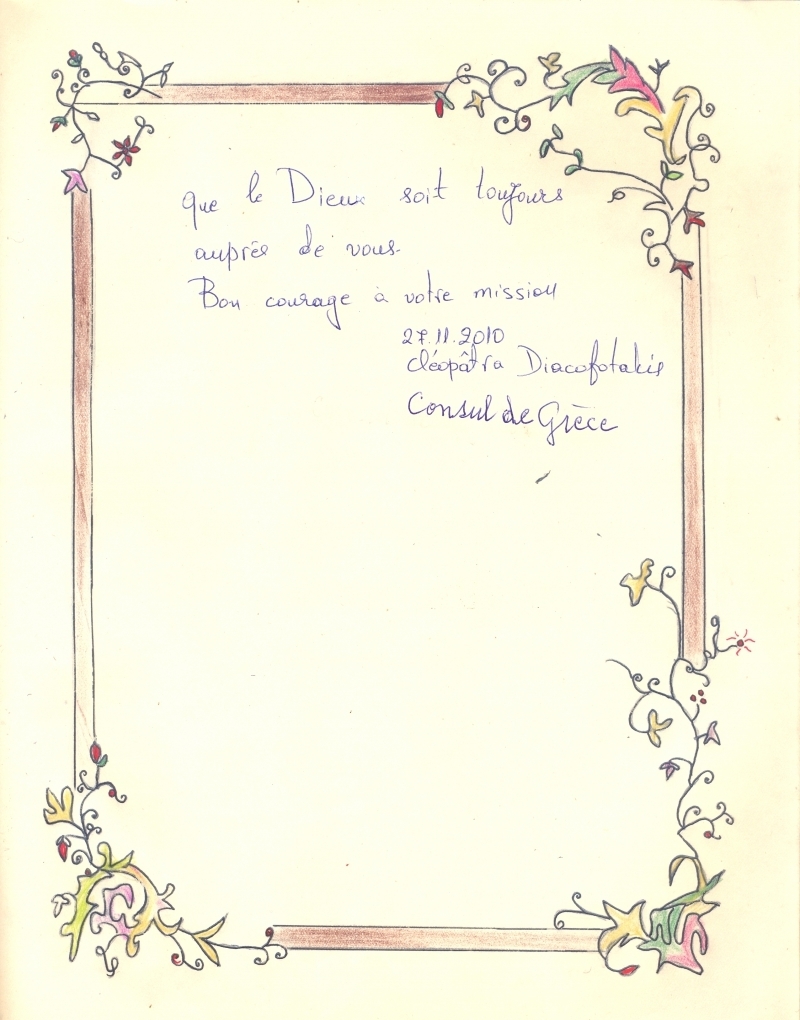 que le Dieux soit toujours
auprés de vous.
Bon courage à votre mission
27.11.2010
cléopâtra Diacofotakis
Consul de Grèce